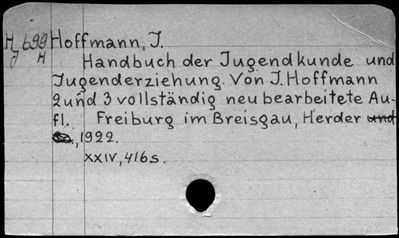 H 699 Hoffmann, J.
J H Handbuch der Jugendkunde und
Jugenderziehung. Von J. Hoffmann
2 und 3 vollständig neu bearbeitete Au-
fl. Freiburg im Breisgau, Herder und
Co., 1922.
XXIV, 416 s.